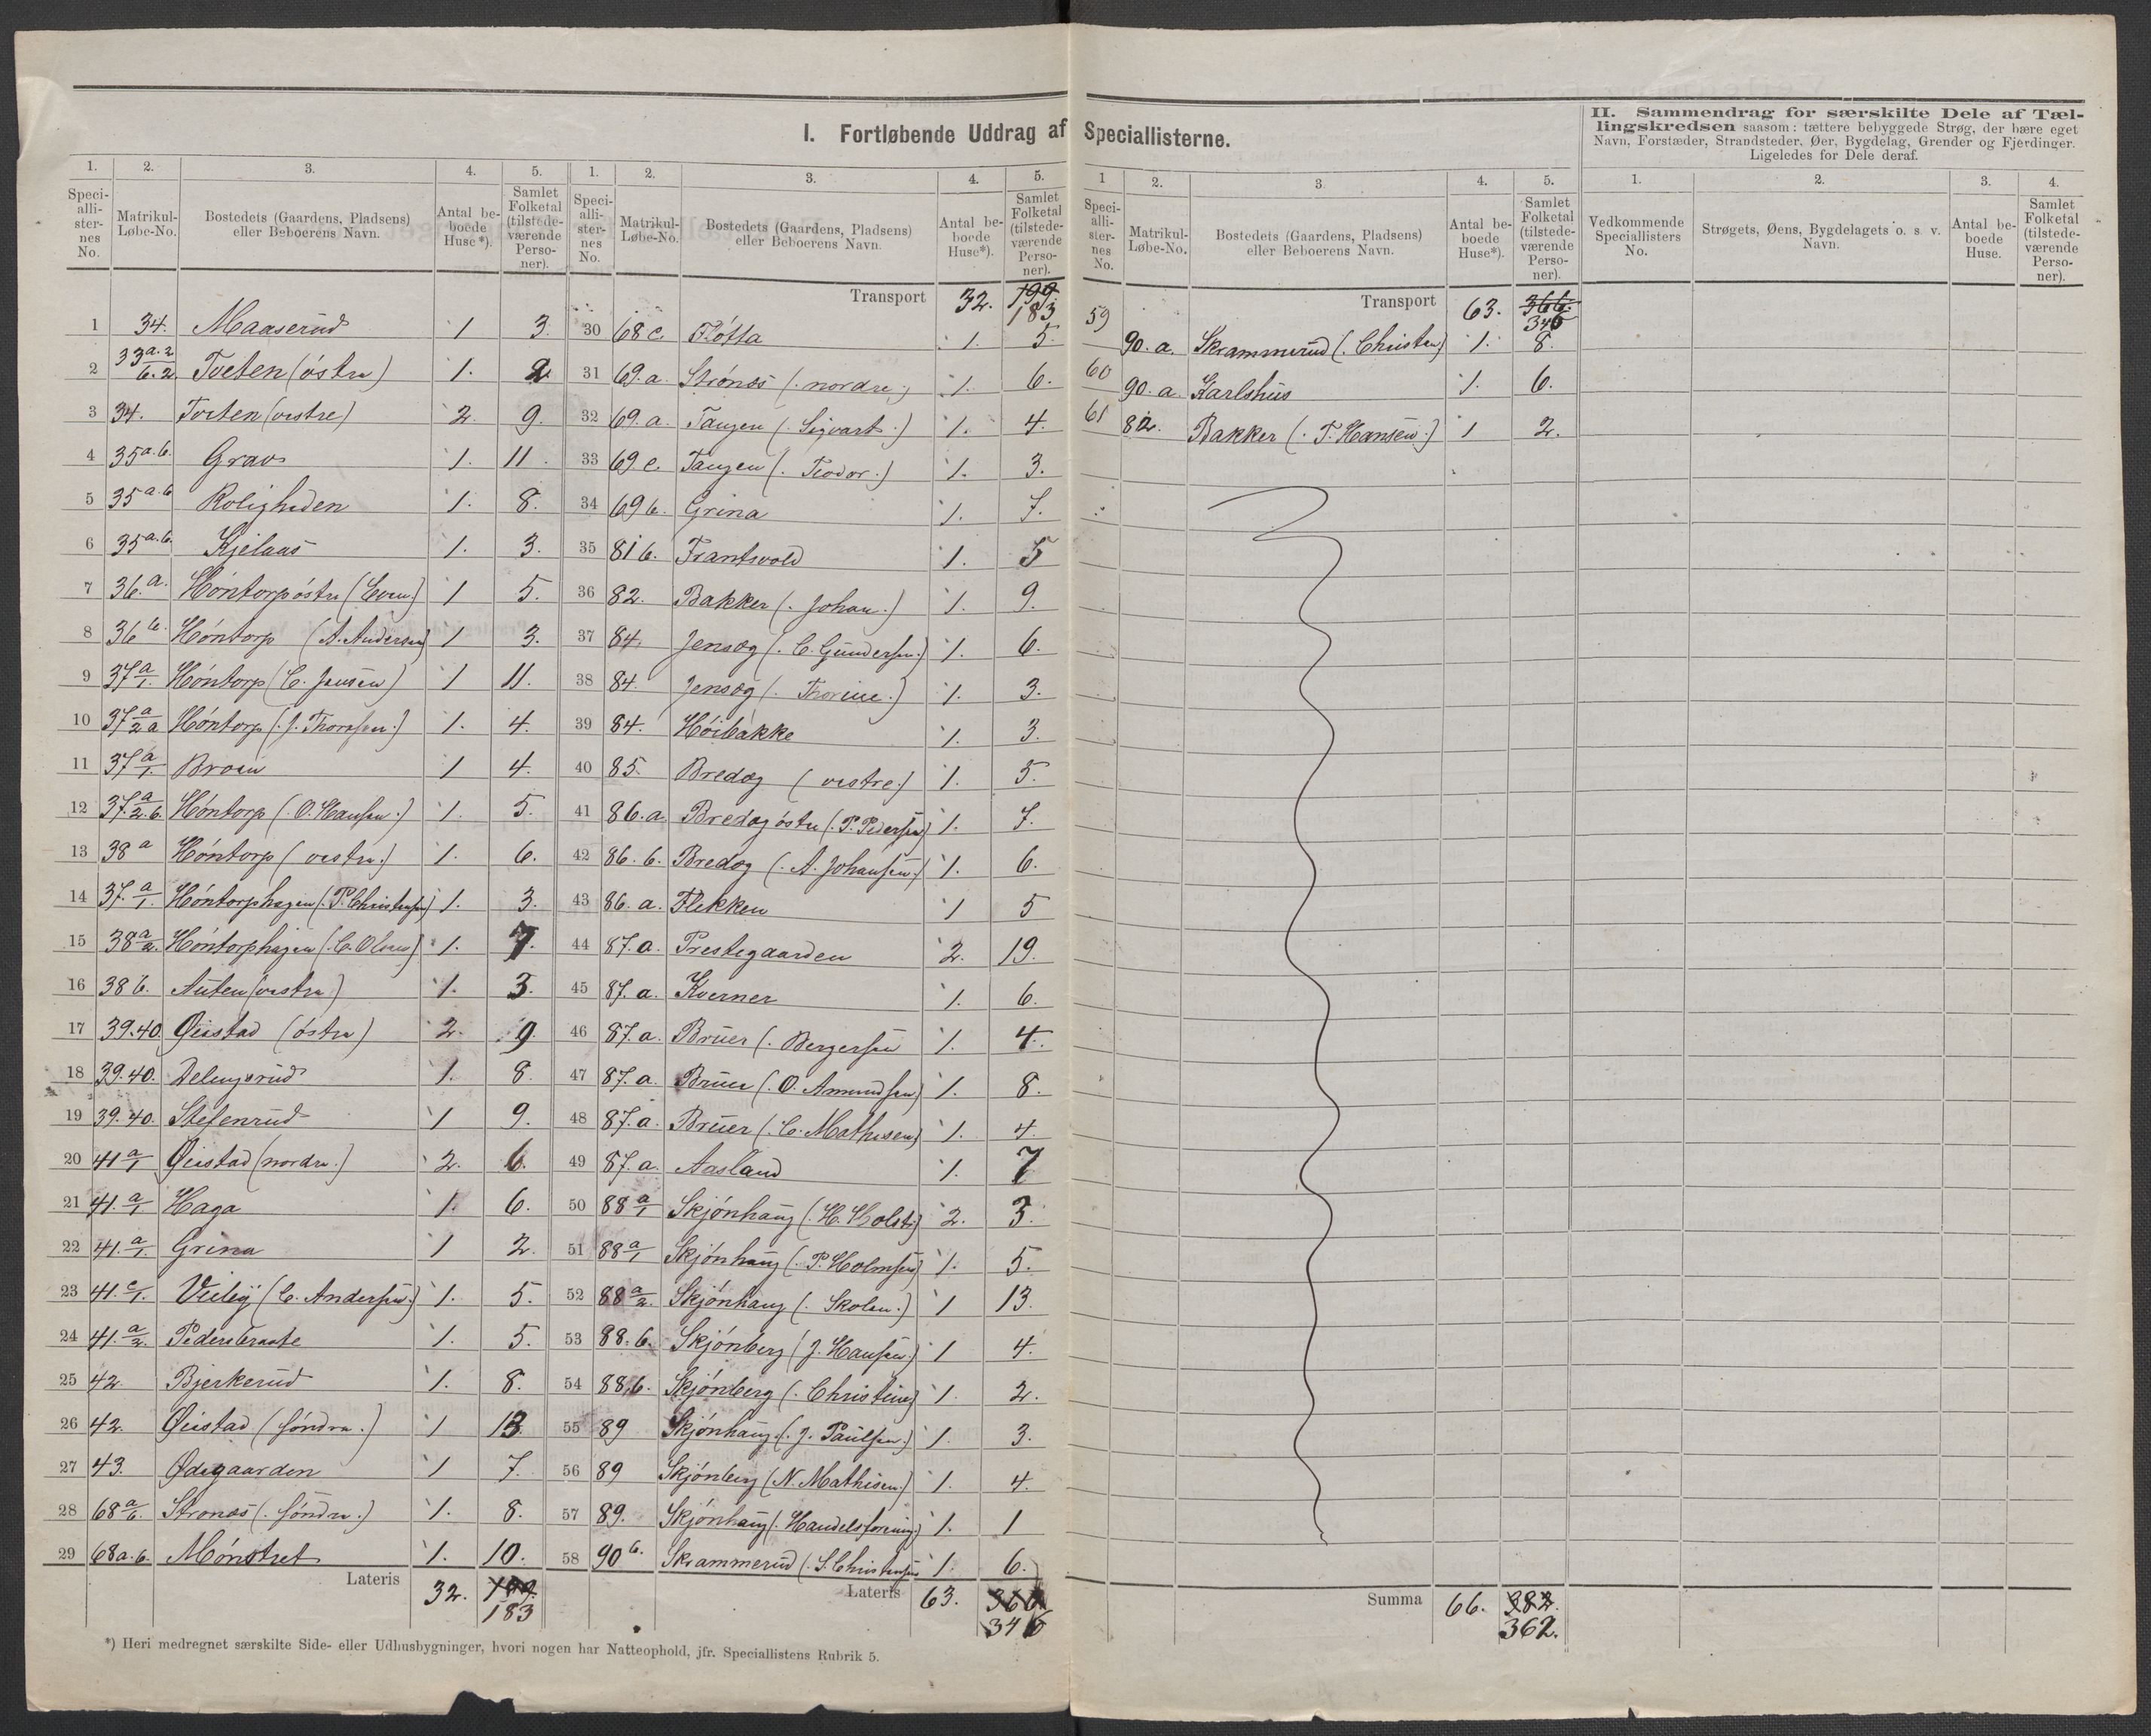 I. Fortløbende Uddrag af Speciallisterne.
II. Sammendrag for særskilte Dele af Tæl-
lingskredsen saasom: tættere bebyggede Strøg, der bære eget
Navn, Forstæder, Strandsteder, Øer, Bygdelag, Grender og Fjerdinger.
Ligeledes for Dele deraf.
1. 2. 3. 4. 5.
Speci-alli-ster-nes No. Matrikul-Løbe-No. Bostedets (Gaardens, Pladsens) eller Beboerens Navn. Antal be-boede Huse*). Samlet Folketal (tilstede-værende Perso-ner).
1 34. Maaserud 1 3.
2 33 a.2 b.2 Tveten (östre) 1. 2
3 34. Tveten (vestre) 2. 9.
4 35 a.b. Grav 1. 11.
5 35 a.b Roligheden 1. 8.
6 35 a.b. Kjilaas 1. 3.
7 36. a. Höntorp östre (Even) 1 5.
8 36 b. Höntorp (A. Andersen) 1 3.
9 37 a/1. Höntorp (C. Jensen) 1 11.
10 37 a/2 a Höntorp (. J. Thoresen .) 1. 4.
11 37 a/1. Broen 1 4.
12 37. a/2. b. Höntorp (. O. Hansen .) 1. 5.
13 38 a Höntorp (vestre.) 1. 6.
14 37. a/1. Höntorphagen (. P. Christensen) 1. 3.
15 38 a/2. Höntorphagen (. C. Olsen) 1. 7.
16 38 b. Auten (vestre) 1. 3.
17 39.40 Öiestad (östre) 2. 9.
18 39.40. Delingsrud 1. 8.
19 39.40. Stefenrud 1 9.
20 41 a/1 Öiestad (nordre.) 2. 6.
21 41. a/1 Haga 1. 6.
22 41. a/1. Grina 1 2.
23 41. c/1. Velliy (C. Andersen.) 1. 5.
24 41. a/2. Pedersbraate 1. 5.
25 42. Bjerkerud 1. 8.
26 42. Öiestad (söndre.) 1 13
27 43. Ödegaarden 1 7.
28 68 a/b. Strönæs (. söndre.) 1. 8.
29 68 a.b. Mönstret 1. 10.
Lateris 32. 199.
183
1. 2. 3. 4. 5.
Speci-alli-ster-nes No. Matrikul-Løbe-No. Bostedets (Gaardens, Pladsens) eller Beboerens Navn. Antal be-boede Huse*). Samlet Folketal (tilstede-værende Perso-ner).
Transport 32. 199
183
30 68 c. Flótta 1. 5.
31 69. a. Strónæs (. nordre .) 1. 6.
32 69. a. Tangen (. Sigvart .) 1. 4.
33 69 c. Tangen (. Teodor .) 1. 3.
34 69 b. Grina 1. 7.
35 81 b. Frantsvold 1. 5
36 82. Bakker (. Johan .) 1. 9.
37 84. Jensøg (. C. Gundersen .) 1. 6.
38 84. Jensøg (. Thorine .) 1. 3.
39 84. Höibakke 1. 3.
40 85. Bredøg (vestre.) 1. 5.
41 86. a. Bredøg östre (. P. Pedersen) 1. 7.
42 86. b. Bredøg (. A. Johansen) 1. 6.
43 86. a. Flekken 1 5
44 87. a. Prestegaarden 2. 19.
45 87. a. Kverner 1. 6.
46 87. a. Bruer (. Bergersen 1. 4.
47 87. a. Bruer (. O. Amundsen) 1. 8.
48 87. a. Bruer (. C. Mathisen) 1. 4.
49 87. a. Aasland 1. 7
50 88 a/1 Skjönhaug (. H. Holst.) 2. 3.
51 88 a/1 Skjönhaug (. P. Holmsen) 1. 5.
52 88 a/2. Skjönhaug (. Skolen .) 1 13.
53 88. b. Skjönberg (J. Hansen.) 1 4.
54 88. b. Skjönberg (. Christine) 1. 2.
55 89 Skjönhaug (. J. Paulsen.) 1. 3.
56 89 Skjönberg (N. Mathisen.) 1. 4.
57 89. Skjönhaug (. Handelsforening.) 1. 1
58 90 b. Skrammerud (. S. Christensen 1. 6.
Lateris 63. 366
346
1 2. 3 4. 5.
Speci-alli-ster-nes No. Matrikul-Løbe-No. Bostedets (Gaardens, Pladsens) eller Beboerens Navn. Antal be-boede Huse*). Samlet Folketal (tilstede-værende Perso-ner).
Transport 63. 366.
346
59 90. a. Skrammerud (. Christen) 1. 8.
60 90. a. Karlshus 1. 6.
61 82. Bakker (. T. Hansen .) 1 2.
Summa 66. 382.
362.
1. 2. 3. 4.
Vedkommende Speciallisters No. Strøgets, Øens, Bygdelagets o. s. v. Navn. Antal be-boede Huse. Samlet Folketal (tilstede-værende Perso-ner).
*) Heri medregnet særskilte Side- eller Udhusbygninger, hvori nogen har Natteophold, jfr. Speciallistens Rubrik 5.